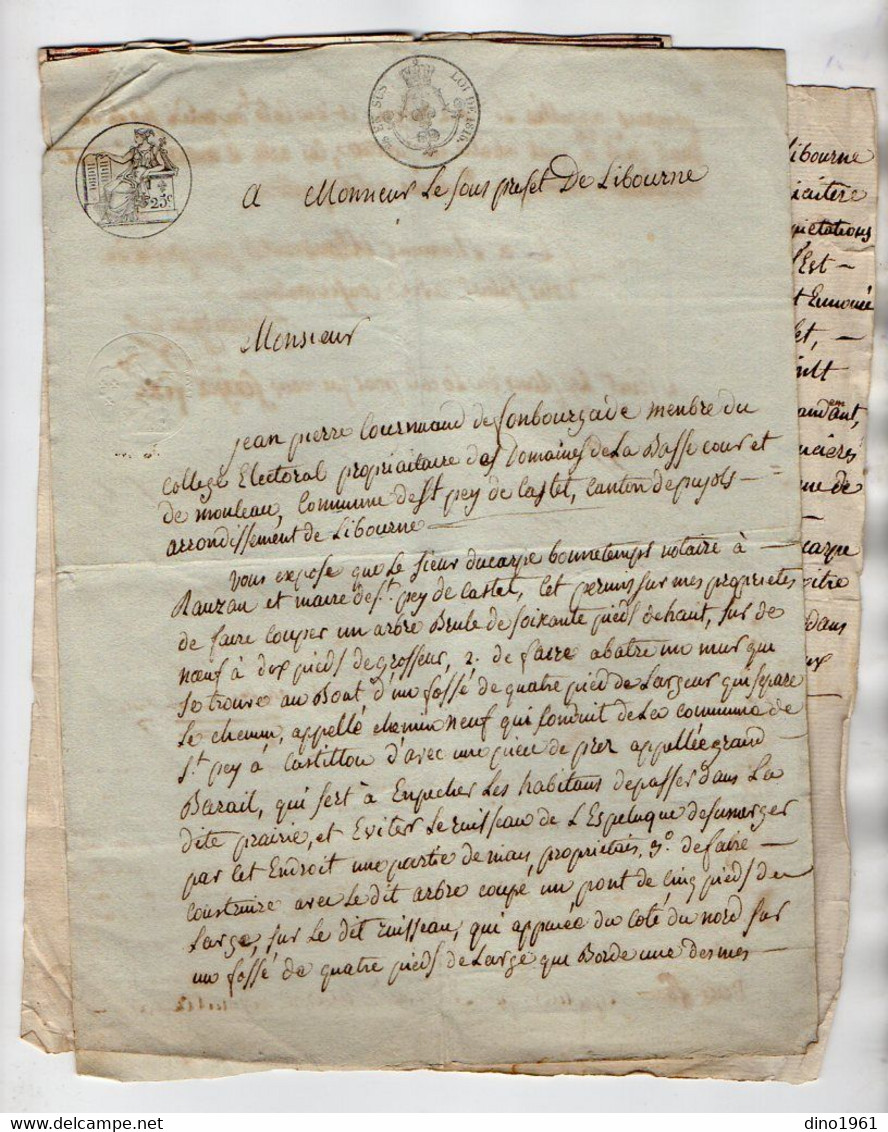 EN SUS
LOI DE 1816.
25c
A Monsieur Le sous prefet De Libourne
Monsieur
jean pierre Cournuaud de fonbourgade menbre du
college Electoral propriaitaire des Domaines de La Basse cour et
de mouleau, Commune de St pey de Castet, Canton de pujols —
arrondissement de Libourne —
vous expose que Le sieur ducarpe bonnetemps notaire à —
Rauzan et maire de St. pey de castet, cet permis sur mes proprietes
de faire couper un arbre Brule de soixante pieds de haut, sur de
nœuf à dix pieds de grosseur, 2. de faire abatre un mur qui
se trouve au Bout d'un fossé de quatre pied de Largeur qui separe
Le chemin, appellé chemin neuf qui conduit de La commune de
St. pey à Castillon d'avec une piece de prez appellée grand —
Barail, qui sert à Enpecher Les habitans de passer dans La
dite prairie, et Eviter Le ruisseau de L'Espeluque de sumerger
par Cet Endroit une partie de mais proprietais, 3o. de faire —
Construire avec Le dit arbre coupé, un pont de cinq pieds de
Large, sur Le dit ruisseau, qui appuiée du coté du nord sur
un fossé de quatre pieds de Large qui Borde une des mes —
Libourne
Est —
et,
ducarpe
dans
dino1961